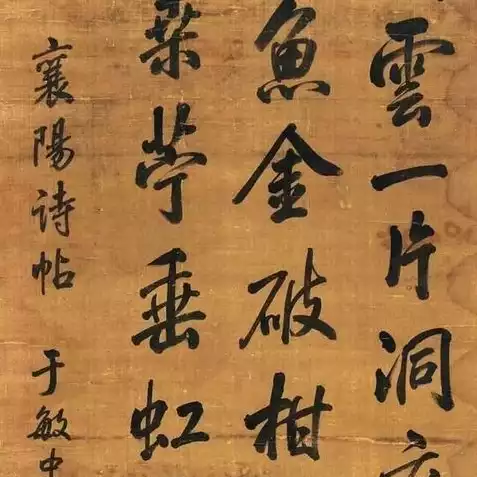 雲一片洞
魚金破柑
桑苧垂虹
襄陽詩帖 于敏中